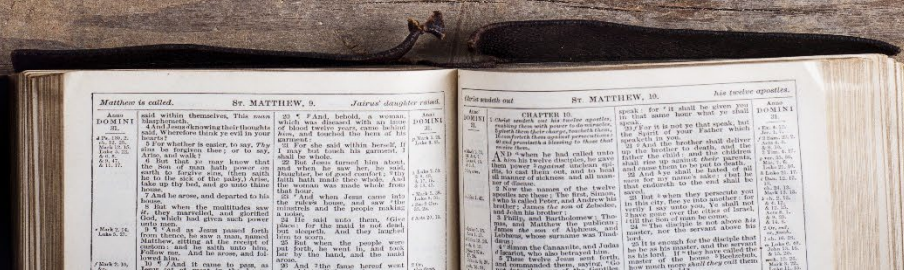 Matthew is called. ST. MATTHEW, 9. Jairus' daughter raised.
Anno
DOMINI
31.
said within themselves, This man
blasphemeth.
4 And Jesus knowing their thoughts
said, Wherefore think ye evil in your
hearts?
5 For whether is easier, to say, Thy
sins be forgiven thee; or to say,
Arise, and walk?
6 But that ye may know that
the Son of man hath power on
earth to forgive sins, (then saith
he to the sick of the palsy,) Arise,
take up thy bed, and go unto thine
house.
7 And he arose, and departed to his
house.
8 But when the multitudes saw
it, they marvelled, and glorified
God, which had given such power
unto men.
9 ¶ And as Jesus passed forth
from thence, he saw a man, named
Matthew, sitting at the receipt of
custom: and he saith unto him,
Follow me. And he arose, and fol-
lowed him.
10 ¶ And it came to pass, as
20 ¶ And, behold, a woman,
which was diseased with an issue
of blood twelve years, came behind
him, and touched the hem of his
garment:
21 For she said within herself, If
I may but touch his garment, I
shall be whole.
22 But Jesus turned him about,
and when he saw her, he said,
Daughter, be of good comfort; thy
faith hath made thee whole. And
the woman was made whole from
that hour.
23 And when Jesus came into
the ruler's house, and saw the
minstrels and the people making
a noise,
24 He said unto them, Give
place: for the maid is not dead,
but sleepeth. And they laughed
him to scorn.
25 But when the people were
put forth, he went in, and took
her by the hand, and the maid
arose.
26 And the fame hereof went
Anno
DOMINI
31.
Christ sendeth out ST. MATTHEW, 10. his twelve apostles.
CHAPTER 10.
1 Christ sendeth out his twelve apostles,
AND when he had called unto
him his twelve disciples, he gave
them power against unclean spir-
its, to cast them out, and to heal
all manner of sickness and all man-
ner of disease.
2 Now the names of the twelve
apostles are these; The first, Simon,
who is called Peter, and Andrew his
brother; James the son of Zebedee,
and John his brother;
3 Philip, and Bartholomew; Tho-
mas, and Matthew the publican;
James the son of Alphæus, and
Lebbæus, whose surname was Thad-
dæus;
4 Simon the Canaanite, and Judas
Iscariot, who also betrayed him.
5 These twelve Jesus sent forth,
and commanded them, saying,
speak: for it shall be given you
in that same hour what ye shall
speak.
20 For it is not ye that speak, but
the Spirit of your Father which
speaketh in you.
21 And the brother shall deliver
up the brother to death, and the
father the child: and the children
shall rise up against their parents,
and cause them to be put to death.
22 And ye shall be hated of all
men for my name's sake: but he
that endureth to the end shall be
saved.
23 But when they persecute you
in this city, flee ye into another: for
verily I say unto you, Ye shall not
have gone over the cities of Israel,
till the Son of man be come.
24 The disciple is not above his
master, nor the servant above his
lord.
25 It is enough for the disciple that
he be as his master, and the servant
as his lord. If they have called the
master of the house Beelzebub,
how much more shall they call them
Anno
DOMINI
31.